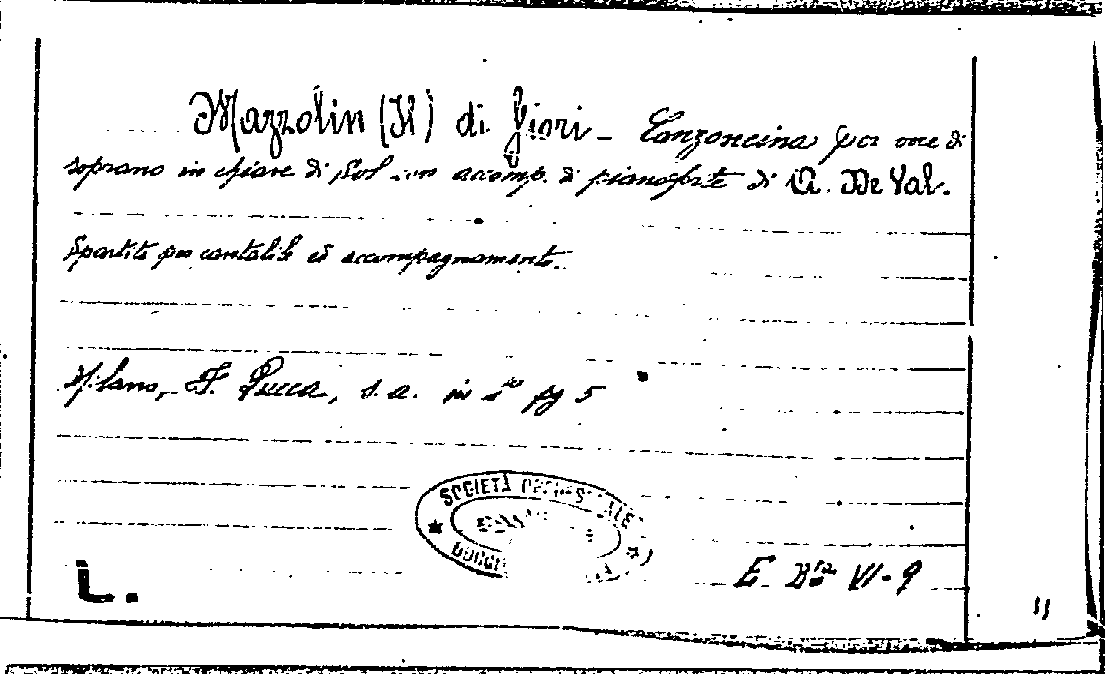 Mazzolin (Il) di fiori - Canzoncina per voce di
soprano in chiave di Sol con accomp. di pianoforte di A. De Val.
Spartito per cantabile ed accompagnamento.
Milano, F. Lucca, s. a. in 4° pg 5
SOCIETÀ
L.
E. Bta VI-9
11